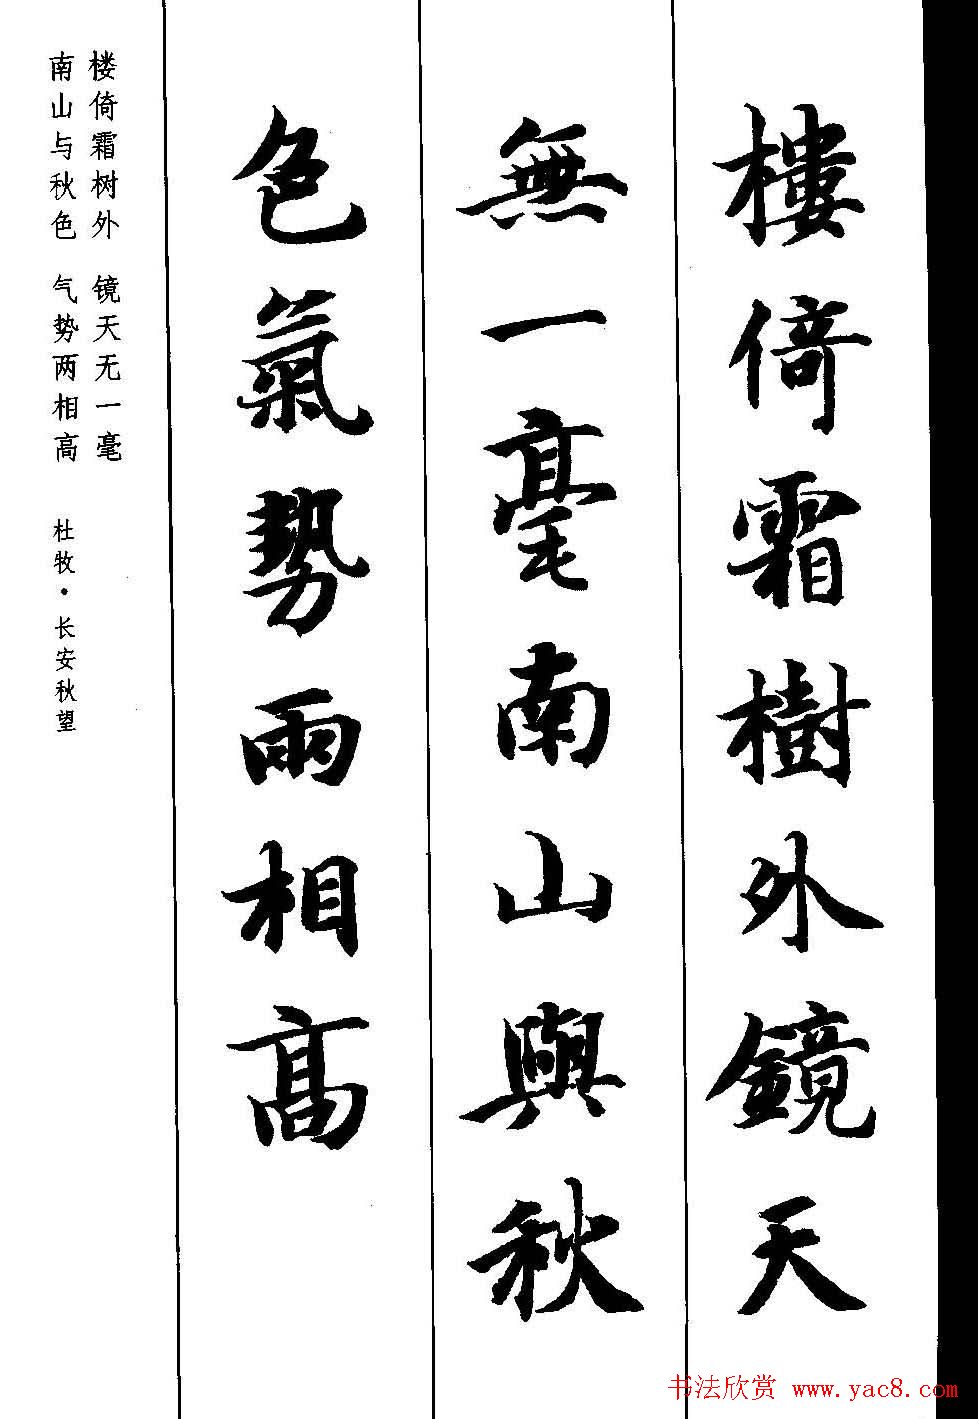 樓倚霜樹外鏡天
無一毫南山與秋
色氣勢兩相高
楼倚霜树外 镜天无一毫
南山与秋色 气势两相高 杜牧·长安秋望
书法欣赏 www.yac8.com